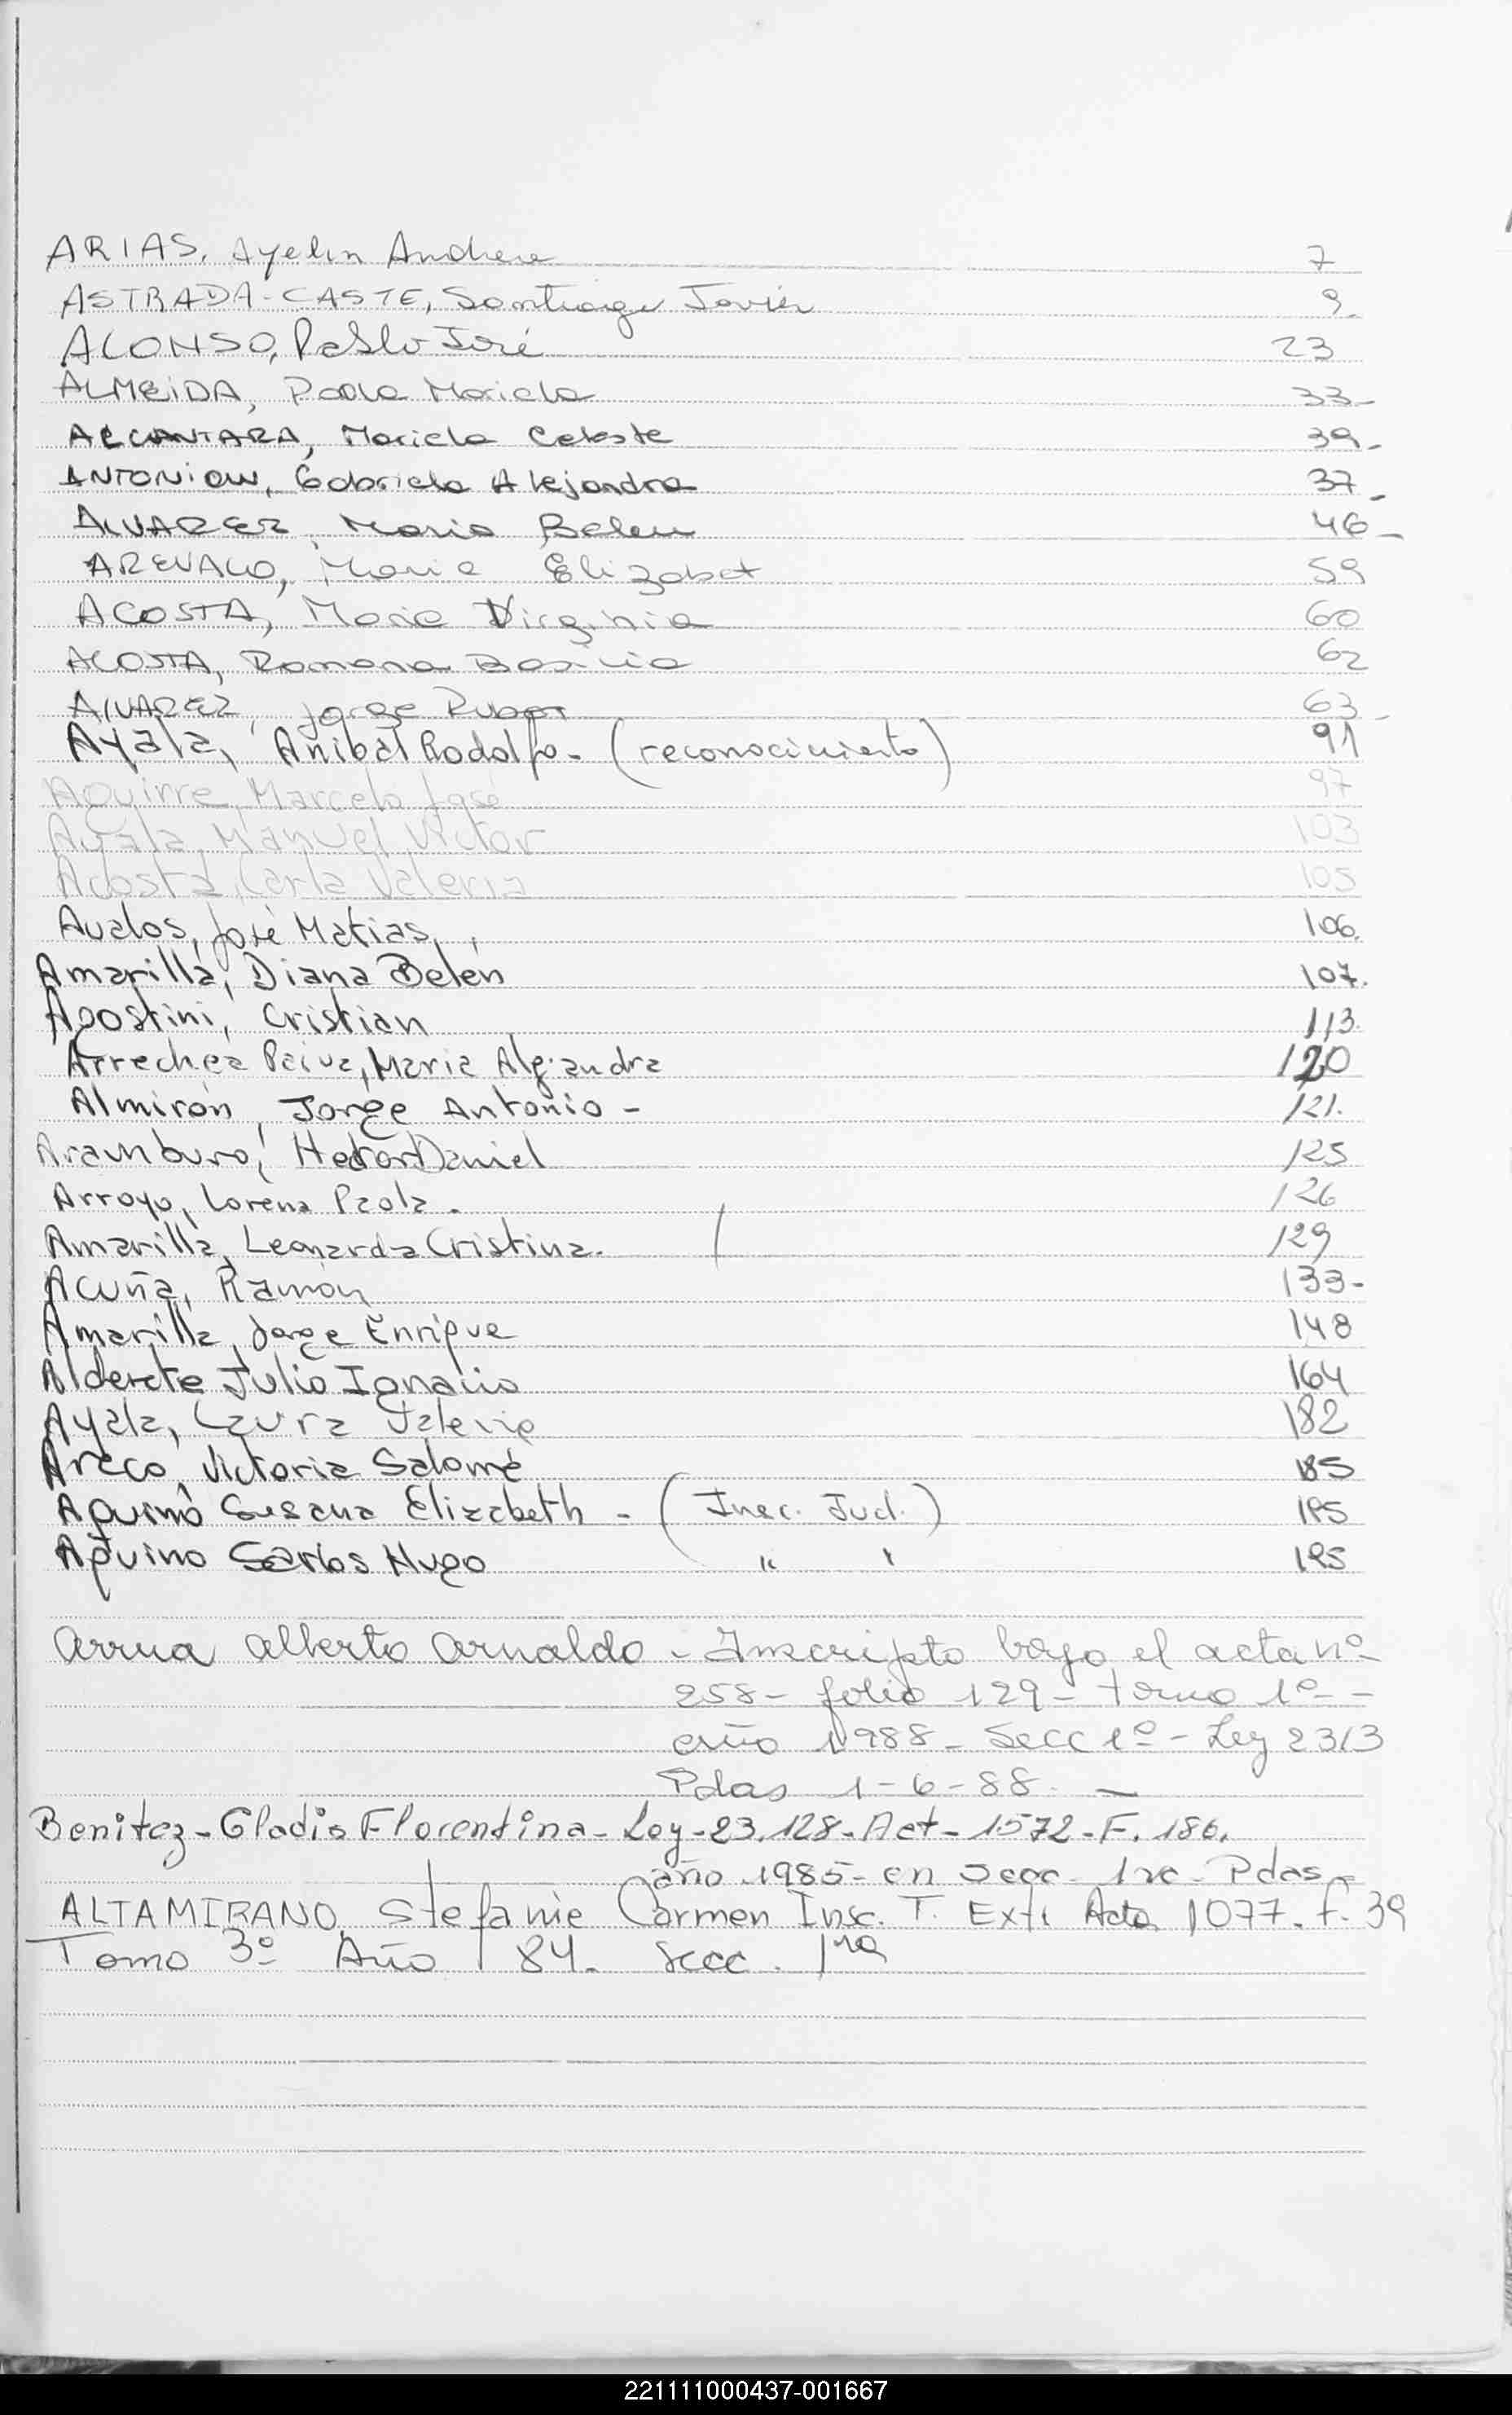 ARIAS, Ayelin Andrea 7
ASTRADA-CASTE, Santiago Javier 9.
ALONSO, Pablo José 23
ALMEIDA, Paola Mariela 33-
ALCANTARA, Mariela Celeste 39-
ANTONIOW, Gabriela Alejandra 37-
ALVAREZ, Maria Belen 46-
AREVALO, Maria Elizabet 59
ACOSTA, Maria Virginia 60
ACOSTA, Romana Basilia 62
ALVAREZ, Jorge Ruben 63-
Ayala, Anibal Rodolfo- (reconocimiento) 91
Aguirre, Marcelo José 97
Ayala, Manuel Victor 103
Acosta, Carla Valeria 105
Avalos, José Matias, 106.
Amarilla, Diana Belén 107.
Agostini, Cristian 113.
Arrechea Paiva, Maria Alejandra 120
Almirón, Jorge Antonio - 121.
Aramburo, Hector Daniel 125
Arroyo, Lorena Paola. 126
Amarilla, Leonarda Cristina. 129
Acuña, Ramón 133-
Amarilla, Jorge Enrique 148
Alderete Julio Ignacio 164
Ayala, Laura Valeria 182
Areco, Victoria Salomé 185
Aquino Susana Elizabeth - (Insc. Jud.) 195
Aquino Carlos Hugo " " 195
Arrua Alberto Arnaldo - Inscripto bajo el acta nº
258- folio 129- tomo 1º-
año 1988- Secc 1º- Ley 2313
Pdas 1-6-88. -
Benitez-Gladis Florentina-Ley-23.128-Act-1572-F. 186.
año 1985- en Secc- 1ra- Pdas-
ALTAMIRANO, Stefanie Carmen Insc. T. Ext. Acta 1077. f. 39
Tomo 3º Año 84. Secc. 1ra
221111000437-001667